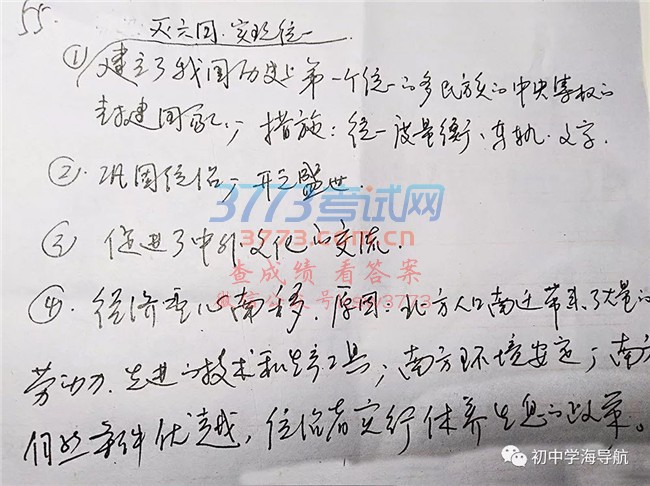 55
灭六国.实现统一
① 建立了我国历史上第一个统一的多民族的中央集权的
封建国家；措施：统一度量衡、车轨.文字.
②.巩固统治；开元盛世.
3773考试网
3773.com.cn
③ 促进了中外文化的交流.
查成绩 看答案
④.经济重心南移.原因：北方人口南迁带来了大量的
劳动力.先进的技术和生产工具；南方环境安定；南方
自然条件优越，统治者实行休养生息的政策。
初中学海导航